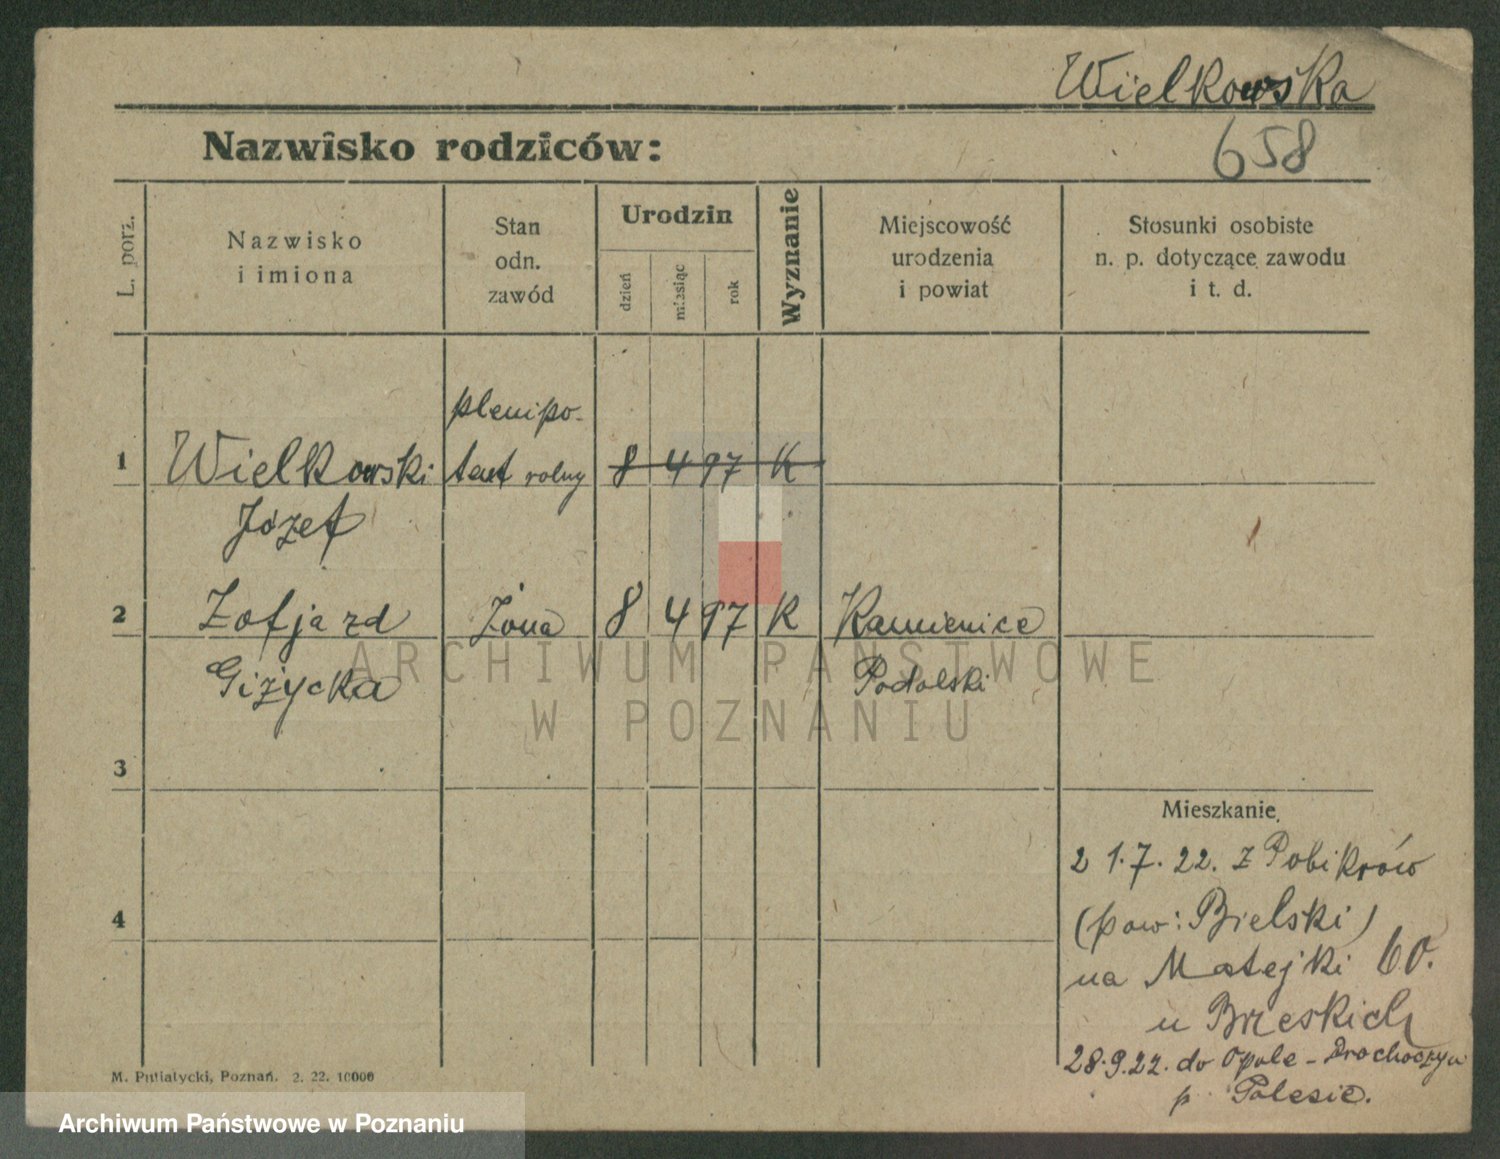 Wielkowska
658
Nazwisko rodziców:
L. porz.
Nazwisko
i imiona
Stan
odn.
zawód
Urodzin
dzień
miesiąc
rok
Wyznanie
Miejscowość
urodzenia
i powiat
Stosunki osobiste
n. p. dotyczące zawodu
i t. d.
plenipo-
1 Wielkowski tent rolny 8 4 97 K
Józef
2 Zofja zd Żona 8 4 97 K Kamienice
Giżycka Podolski
ARCHIWUM PAŃSTWOWE
W POZNANIU
3
Mieszkanie
2 1.7.22. z Pobikrów
4
(pow: Bielski)
na Matejki 60.
u Brzeskich
28.9.22. do Opole - Drohoczyn
p. Polesie.
M. Putiatycki, Poznań. 2. 22. 10000
Archiwum Państwowe w Poznaniu